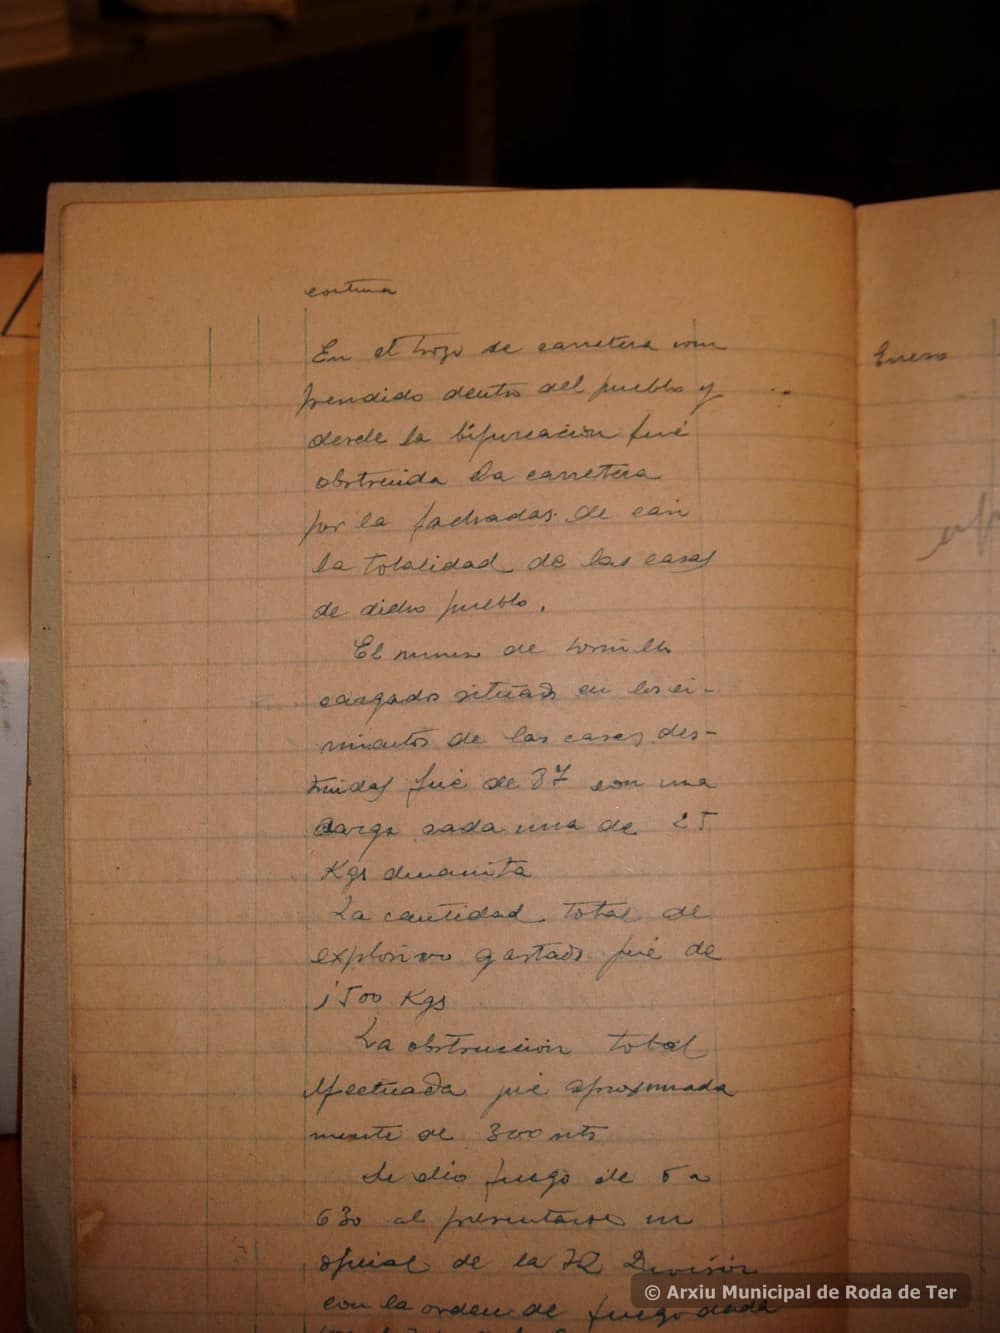 continua
En el trozo de carretera com
prendido dentro del pueblo y
desde la bifurcación fué
obstruida la carretera
por la fachadas de casi
la totalidad de las casas
de dicho pueblo.
El numero de hornillos
cargados situados en los ci-
mientos de las casas des-
truidas fué de 37 con una
carga cada una de 25
Kgs dinamita
La cantidad total de
explosivo gastado fué de
1500 Kgs
La obstrucción total
efectuada fué aproximada
mente de 300 mts
Se dio fuego de 5 a
630 al presentarse un
oficial de la 72 División
con la orden de fuego dada
Enero
© Arxiu Municipal de Roda de Ter